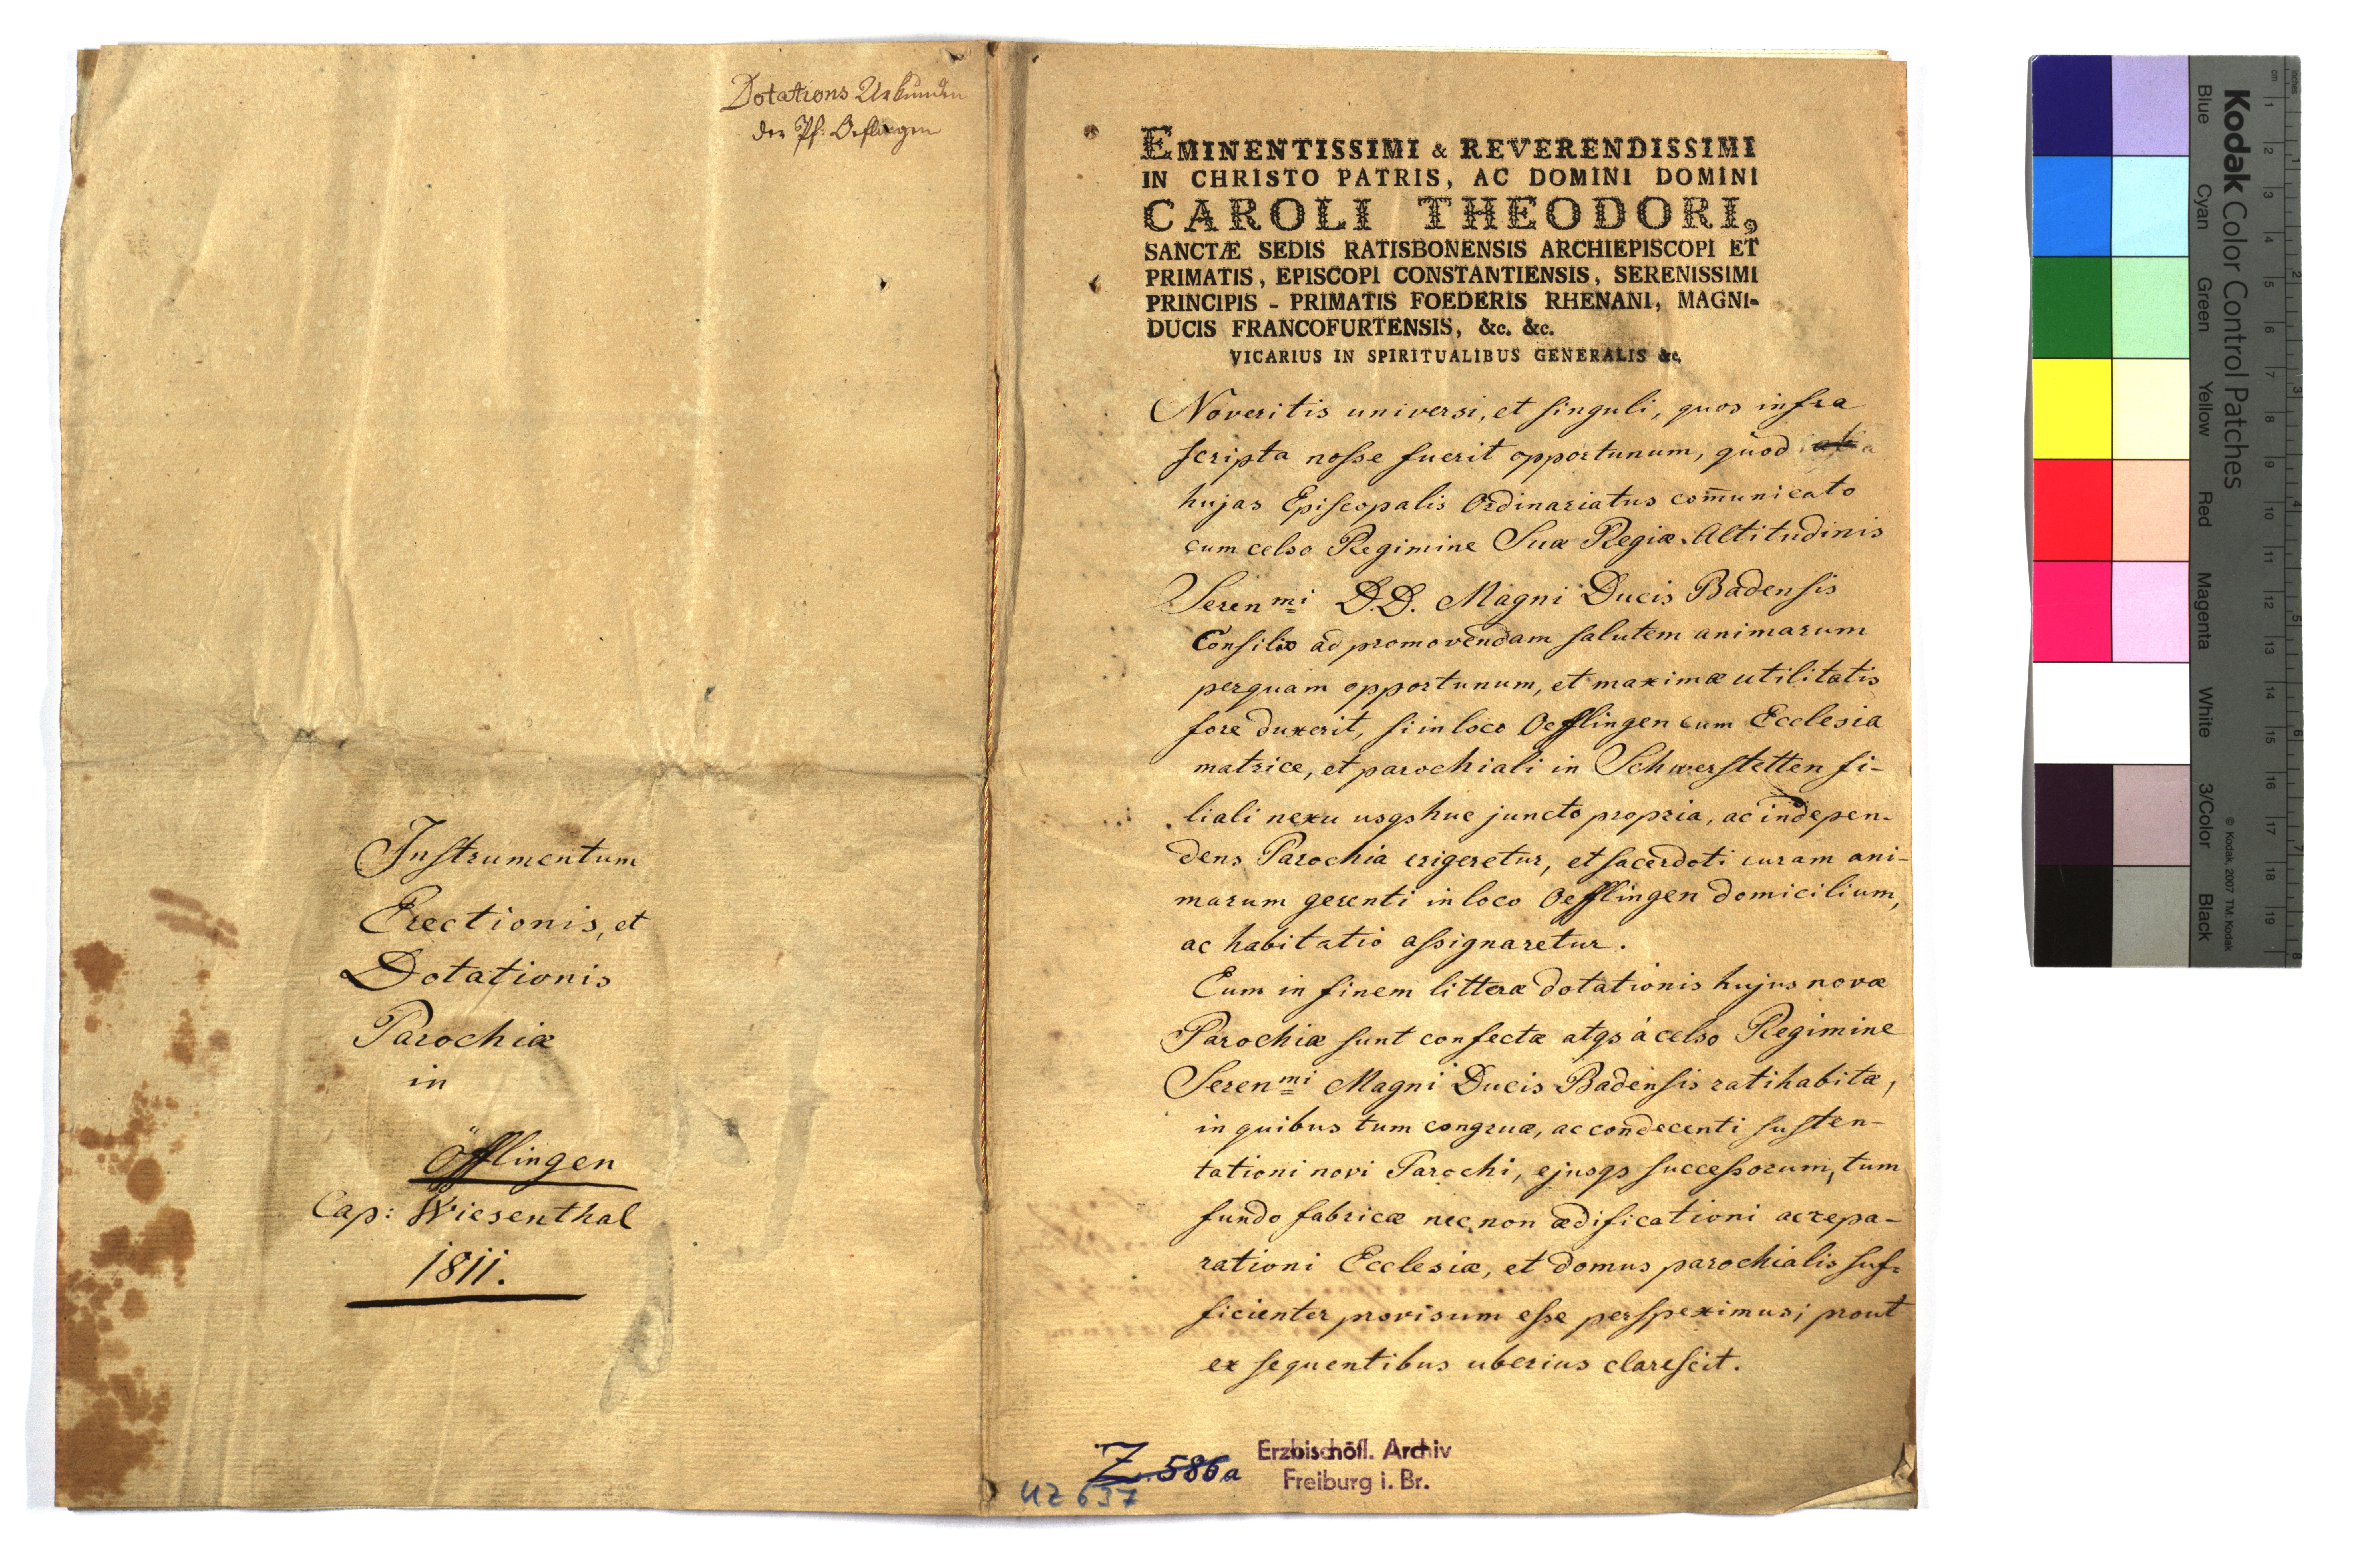 Dotations Urkunden
der Pf: Oeflingen
Instrumentum
Erectionis, et
Dotationis
Parochiæ
in
Öfflingen
Cap: Wiesenthal
1811.
EMINENTISSIMI & REVERENDISSIMI
IN CHRISTO PATRIS, AC DOMINI DOMINI
CAROLI THEODORI,
SANCTÆ SEDIS RATISBONENSIS ARCHIEPISCOPI ET
PRIMATIS, EPISCOPI CONSTANTIENSIS, SERENISSIMI
PRINCIPIS - PRIMATIS FOEDERIS RHENANI, MAGNI-
DUCIS FRANCOFURTENSIS, &c. &c.
VICARIUS IN SPIRITUALIBUS GENERALIS &c.
Noveritis universi, et singuli, quos infra
scripta nosse fuerit opportunum, quod
hujas Episcopalis Ordinariatus com̄unicato
cum celso Regimine Suæ Regiæ Altitudinis
Seren mi D.D. Magni Ducis Badensis
Consilio ad promovendam salutem animarum
perquam opportunum, et maximæ utilitatis
fore duxerit, si in loco Oefflingen cum Ecclesia
matrice, et parochiali in Schwerstetten fi-
liali nexu usqs huc juncto propria, ac indepen-
dens Parochia erigeretur, et sacerdoti curam ani-
marum gerenti in loco Oefflingen domicilium,
ac habitatio assignaretur.
Eum in finem litteræ dotationis hujus novæ
Parochiæ sunt confectæ atqs à celso Regimine
Seren mi Magni Ducis Badensis ratihabitæ,
in quibus tum congruæ, ac condecenti susten-
tationi novi Parochi, ejusqs successorum, tum
fundo fabricæ nec non ædificationi ac repa-
rationi Ecclesiæ, et domus parochialis suf-
ficienter provisum esse perspeximus; prout
ex sequentibus uberius clarescit.
Z 586a
UZ 637
Erzbischöfl. Archiv
Freiburg i. Br.
Kodak Color Control Patches
Blue Cyan Green Yellow Red Magenta White 3/Color Black
© Kodak, 2007 TM: Kodak
cm 1 2 3 4 5 6 7 8 9 10 11 12 13 14 15 16 17 18 19
inches 1 2 3 4 5 6 7 8